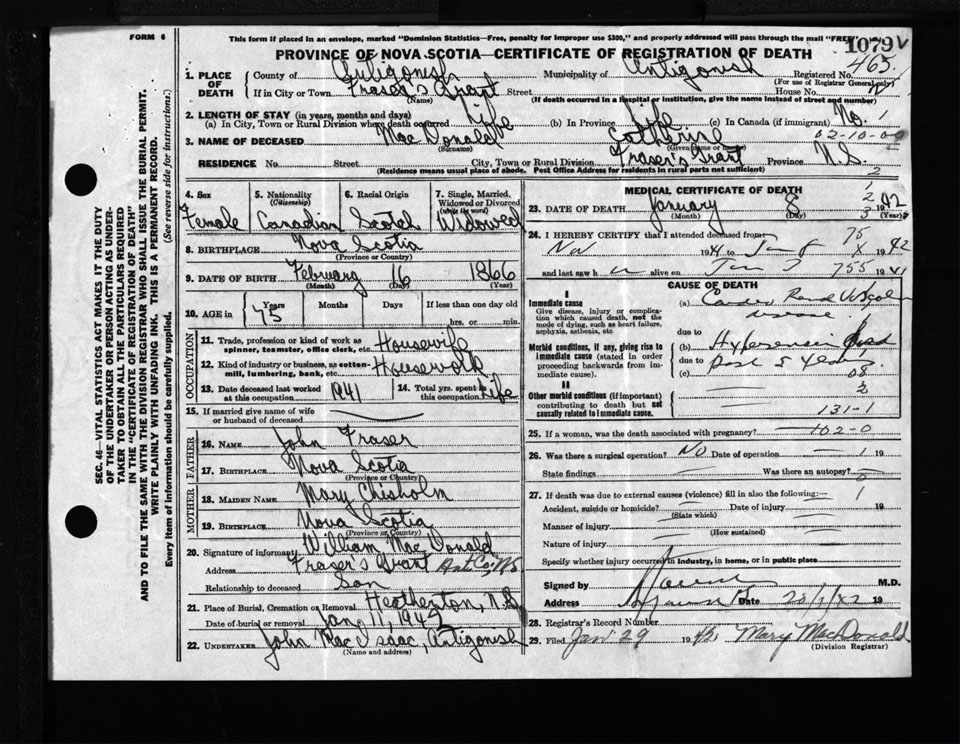 FORM 6
This form if placed in an envelope, marked "Dominion Statistics—Free, penalty for improper use $300," and properly addressed will pass through the mail "FREE"
PROVINCE OF NOVA SCOTIA—CERTIFICATE OF REGISTRATION OF DEATH
1079 V
465
1. PLACE OF DEATH County of Antigonish Municipality of Antigonish Registered No.
(For use of Registrar General only)
If in City or Town Fraser's Grant Street House No.
(Name) (If death occurred in a hospital or institution, give the name instead of street and number)
2. LENGTH OF STAY (in years, months and days)
(a) In City, Town or Rural Division where death occurred Life (b) In Province Life (c) In Canada (if immigrant) No. 1
02-10-00
3. NAME OF DECEASED MacDonald Catherine
(Surname) (Given name or name)
RESIDENCE No. Street City, Town or Rural Division Fraser's Grant Province N.S.
(Residence means usual place of abode. Post Office Address for residents in rural parts not sufficient)
2
4. Sex Female
5. Nationality (Citizenship) Canadian
6. Racial Origin Scotch
7. Single, Married, Widowed or Divorced (write the word) Widowed
8. BIRTHPLACE Nova Scotia
(Province or Country)
9. DATE OF BIRTH February 16 1866
(Month) (Day) (Year)
10. AGE in Years 75 Months Days If less than one day old
hrs. or min.
OCCUPATION
11. Trade, profession or kind of work as spinner, teamster, office clerk, etc. Housewife
12. Kind of industry or business, as cotton-mill, lumbering, bank, etc. Housework
13. Date deceased last worked at this occupation 1941
14. Total yrs. spent in this occupation Life
15. If married give name of wife or husband of deceased
FATHER
16. NAME John Fraser
17. BIRTHPLACE Nova Scotia
(Province or Country)
MOTHER
18. MAIDEN NAME Mary Chisholm
19. BIRTHPLACE Nova Scotia
(Province or Country)
20. Signature of informant William MacDonald
Address Fraser's Grant Ant. Co. N.S.
Relationship to deceased Son
21. Place of Burial, Cremation or Removal Heatherton, N.S.
Date of burial or removal Jan. 11, 1942
22. UNDERTAKER John MacIsaac, Antigonish
(Name and address)
MEDICAL CERTIFICATE OF DEATH
23. DATE OF DEATH January 8 1942
(Month) (Day) (Year)
24. I HEREBY CERTIFY that I attended deceased from:
Nov 1941 to 1942
and last saw h alive on 19
CAUSE OF DEATH
I
Immediate cause
Give disease, injury or complication which caused death, not the mode of dying, such as heart failure, asphyxia, asthenia, etc
(a) disease
Morbid conditions, if any, giving rise to immediate cause (stated in order proceeding backwards from immediate cause).
due to
(b)
due to past 5 years
(c)
II
Other morbid conditions (if important) contributing to death but not causally related to immediate cause.
131-1
25. If a woman, was the death associated with pregnancy? 102-0
26. Was there a surgical operation? NO Date of operation 19
State findings Was there an autopsy?
27. If death was due to external causes (violence) fill in also the following:
Accident, suicide or homicide? Date of injury 19
(State which)
Manner of injury
(How sustained)
Nature of injury
Specify whether injury occurred in industry, in home, or in public place
Signed by M.D.
Address Date 19
28. Registrar's Record Number
29. Filed Jan 29 19 Mary MacDonald
(Division Registrar)
SEC. 46—VITAL STATISTICS ACT MAKES IT THE DUTY
OF THE UNDERTAKER OR PERSON ACTING AS UNDER-
TAKER TO OBTAIN ALL THE PARTICULARS REQUIRED
IN THE "CERTIFICATE OF REGISTRATION OF DEATH"
AND TO FILE THE SAME WITH THE DIVISION REGISTRAR WHO SHALL ISSUE THE BURIAL PERMIT.
WRITE PLAINLY WITH UNFADING INK. THIS IS A PERMANENT RECORD.
Every item of information should be carefully supplied. (See reverse side for instructions.)